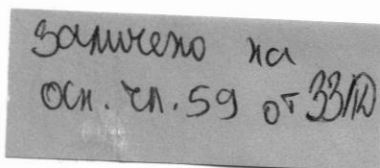 Заличено на
осн. чл. 59 от ЗЗЛД